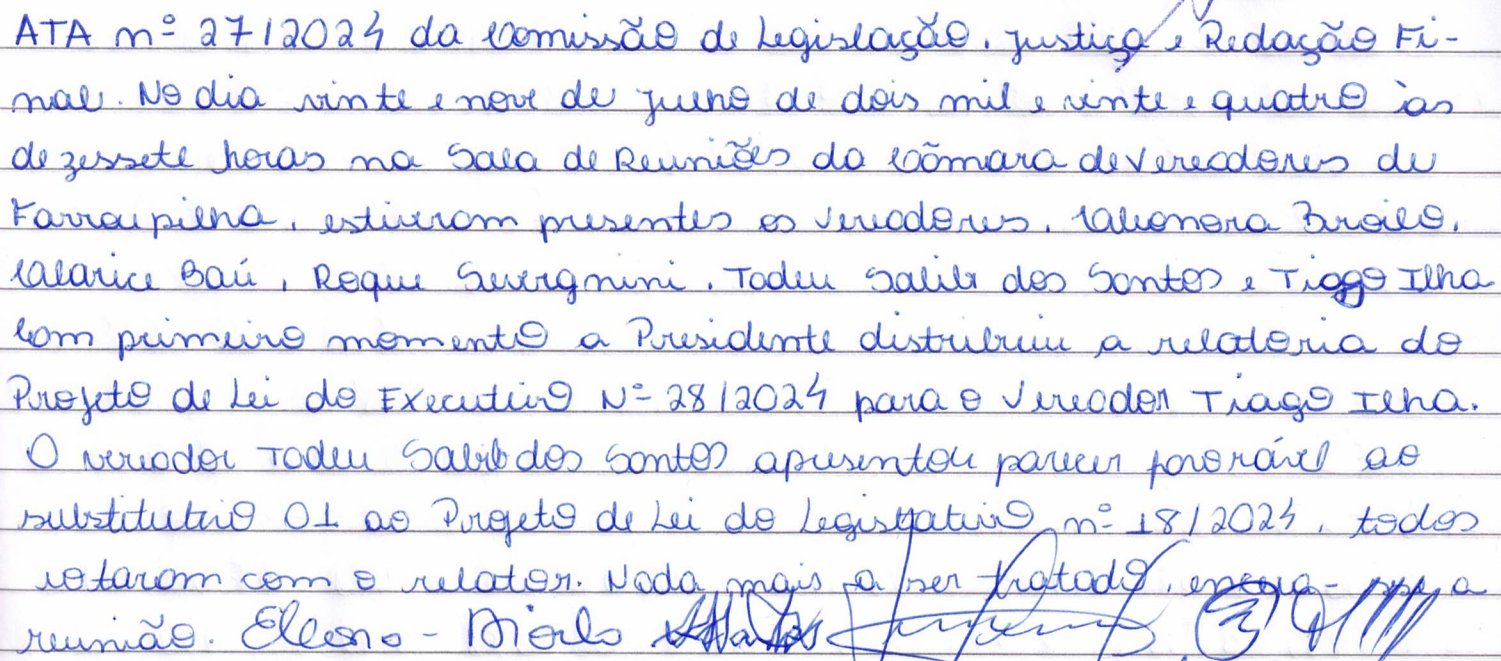 ATA nº 27/2024 da Comissão de Legislação, Justiça e Redação Fi-
nal. No dia vinte e nove de julho de dois mil e vinte e quatro às
dezessete horas na Sala de Reuniões da Câmara de Vereadores de
Farroupilha, estiveram presentes os vereadores, Eleonora Broilo,
Clarice Baú, Roque Severgnini, Tadeu Salib dos Santos e Tiago Ilha
Com primeiro momento a Presidente distribuiu a relatoria do
Projeto de Lei do Executivo Nº 28/2024 para o Vereador Tiago Ilha.
O vereador Tadeu Salib dos Santos apresentou parecer favorável ao
substitutivo 01 ao Projeto de Lei do Legislativo nº 18/2024, todos
votaram com o relator. Nada mais a ser tratado, a
reunião.